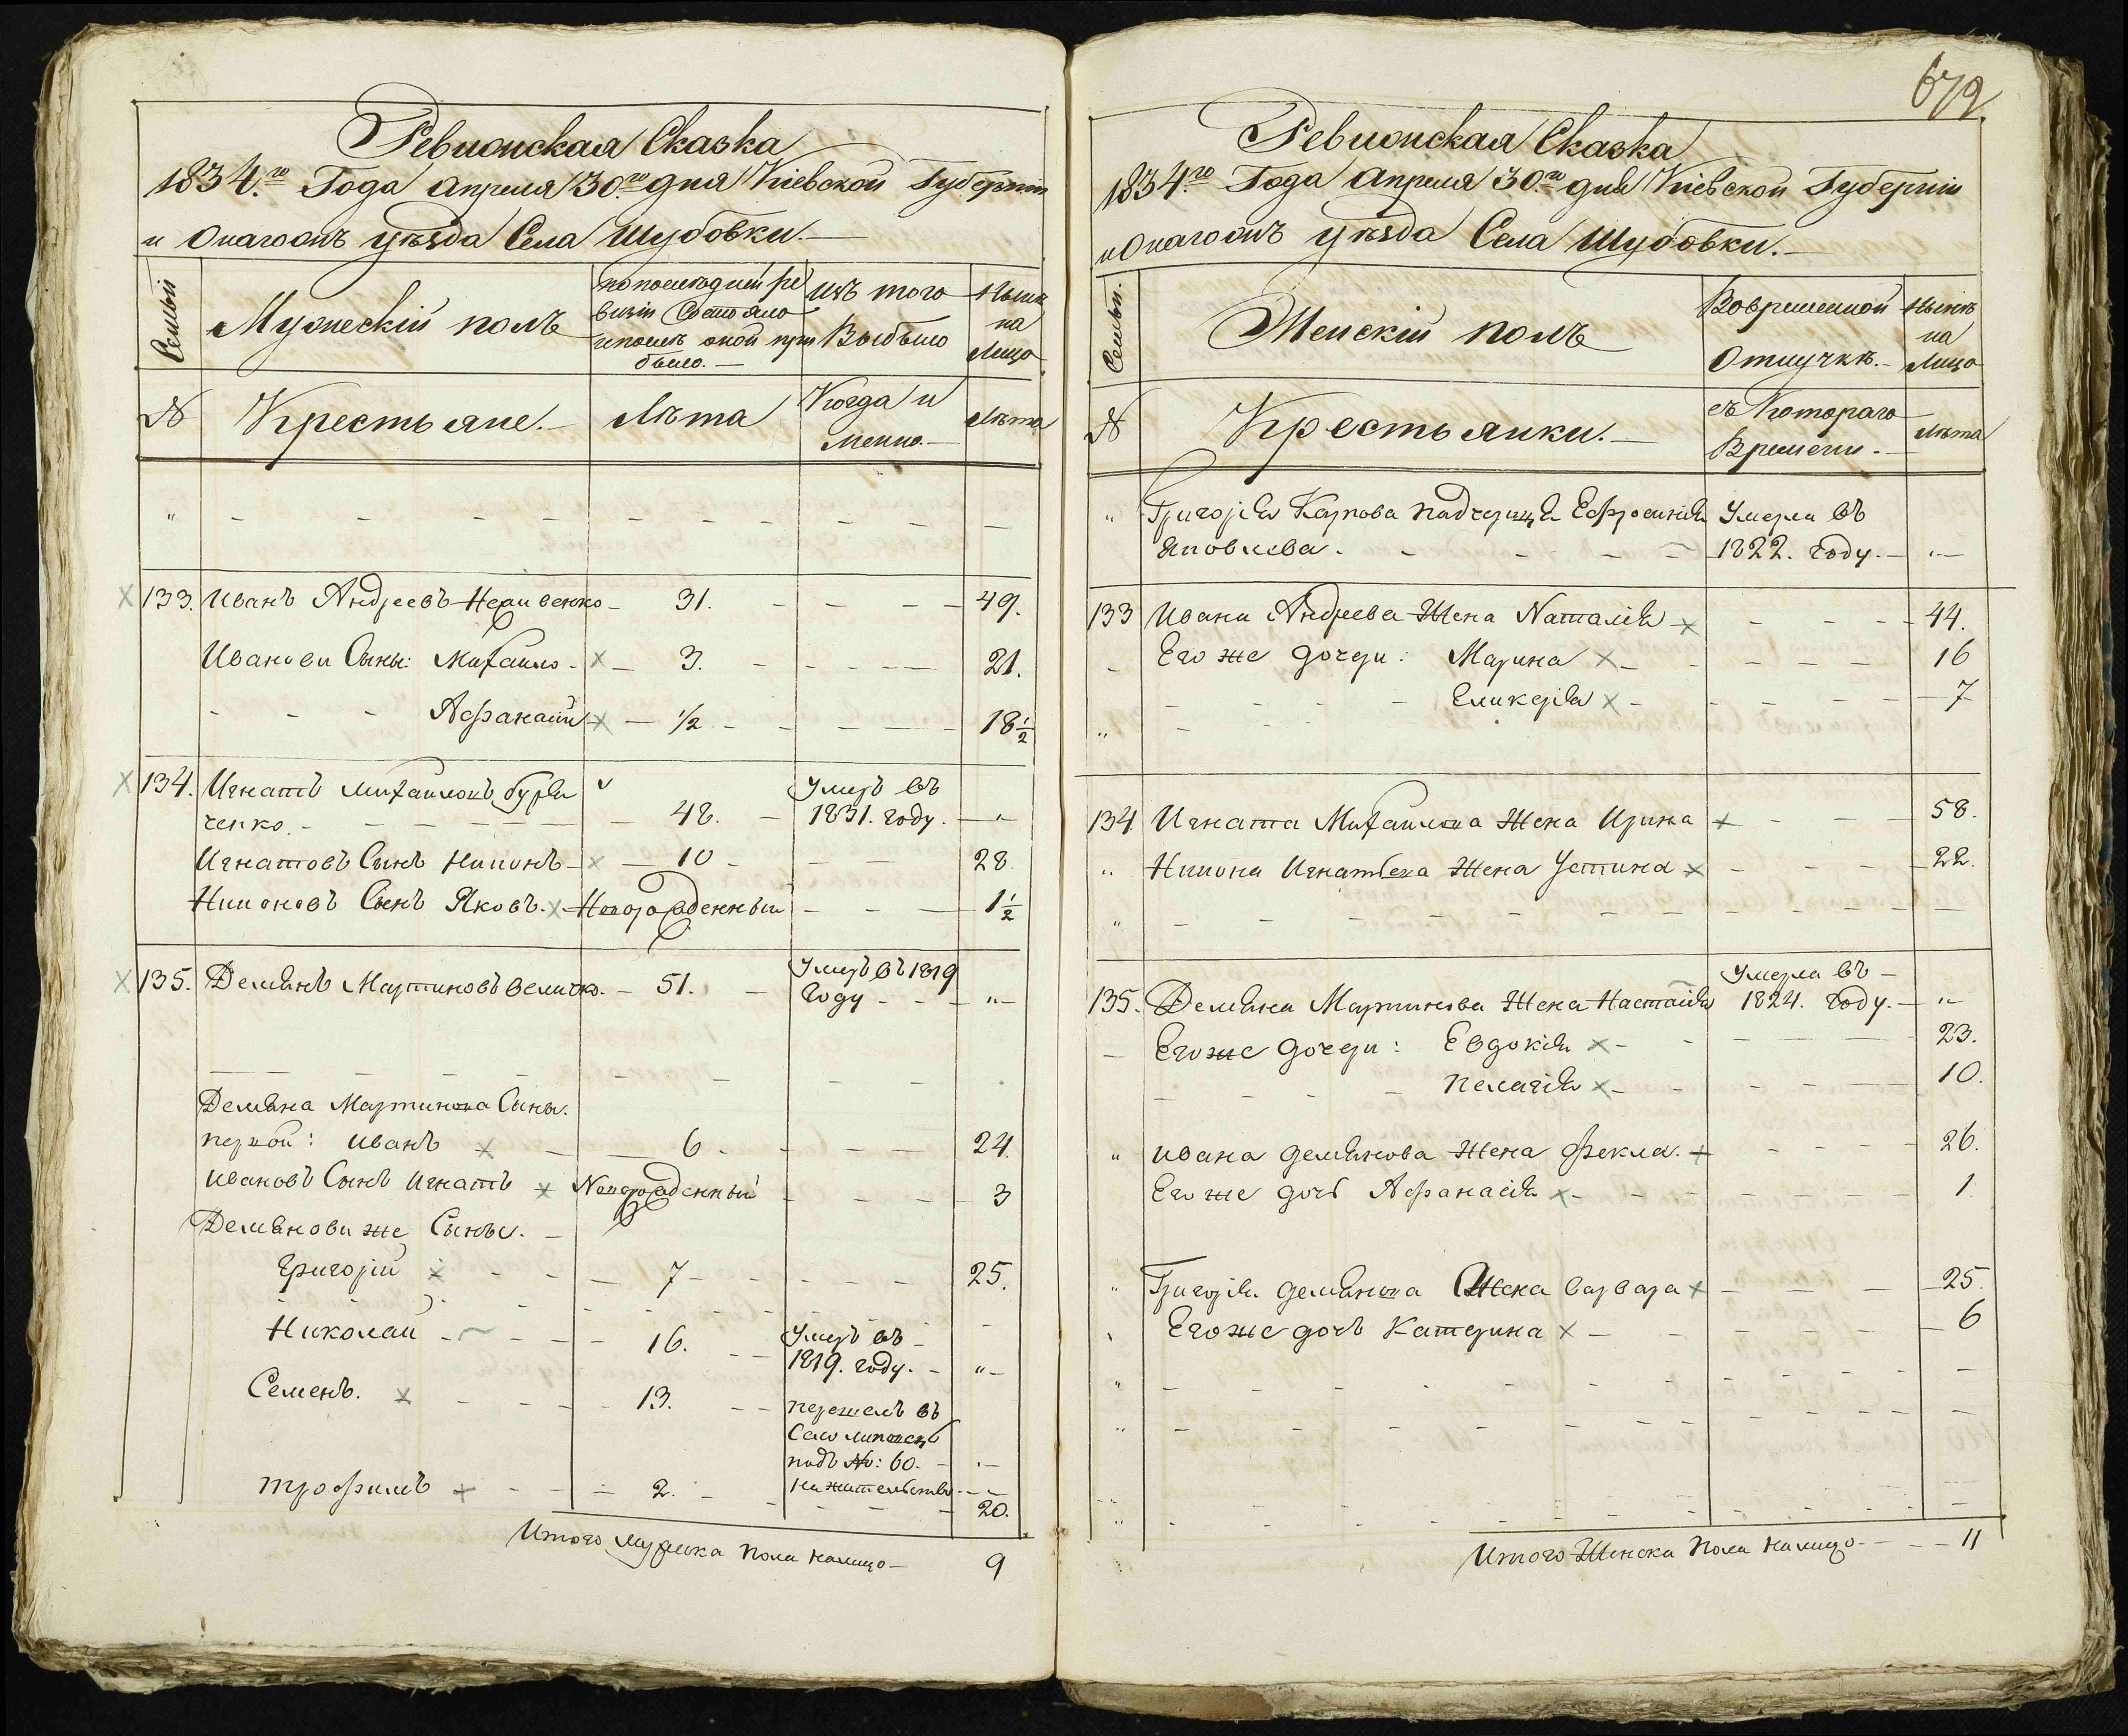 Ревионская Сказка
1834.го Года апреля 30.го дня Кіевской Губерніи
и Онагожъ уѣзда Села Шубовки.
Семьи
Мужескій полъ
попослѣдней ре
визіи Состояло
ипослѣ оной при
было.
изъ того
Выбыло
Нынѣ
на
Лицо
№
Крестьяне.
Лѣта
Когда и
Менно.
Лѣта
133. Иванъ Андреевъ 31. 49.
Иванови Сыны: Михайло 3. 21.
Афанасій ½ 18½
134. Игнатъ Михайловъ Бурла
ченко. 48. Умеръ въ
1831. году.
Игнатовъ Сынъ Нипонъ 10 28.
Нипоновъ Сынъ Яковъ. Новорожденный 1½
135. Демянъ Мартиновъ Величко. 51. Умеръ въ 1819
году
Демяна Мартинова Сыны.
первой: Иванъ 6 24.
Ивановъ Сынъ Игнатъ Новорожденный 3
Демянови же Сыны.
Григорій 7 25.
Николай 16. Умеръ въ
1819. году.
Семенъ. 13. перешелъ въ
Село
подъ №: 60.
на жительство
Трофимъ 2. 20.
Итого мужеска пола налицо 9
679
Ревионская Сказка
1834.го Года Апреля 30.го дня Кіевской Губерніи
и Онагожъ уѣзда Села Шубовки.
Семьи.
Женскій полъ
Вовременной
Отлучкѣ.
Нынѣ
на
Лицо
№
Крестьянки.
съ Котораго
Времени.
Лѣта
Григорія Карпова падчерица Ефросинія Умерла въ
Яковлева. 1822. году.
133 Ивана Андреева Жена Наталія 44.
Его же дочери: Марина 16
Гликерія 7
134 Игната Михайлова Жена Ирина 58.
Нипона Игнатьева Жена Устина 22.
135. Демяна Мартинова Жена Настасія Умерла въ
1824. году.
Егоже дочери: Евдокія 23.
Пелагія 10.
Ивана Демянова Жена Фекла. 26.
Его же дочь Афанасія 1.
Григорія Демянова Жена Варвара 25.
Егоже дочь Катерина 6
Итого Женска пола налицо 11